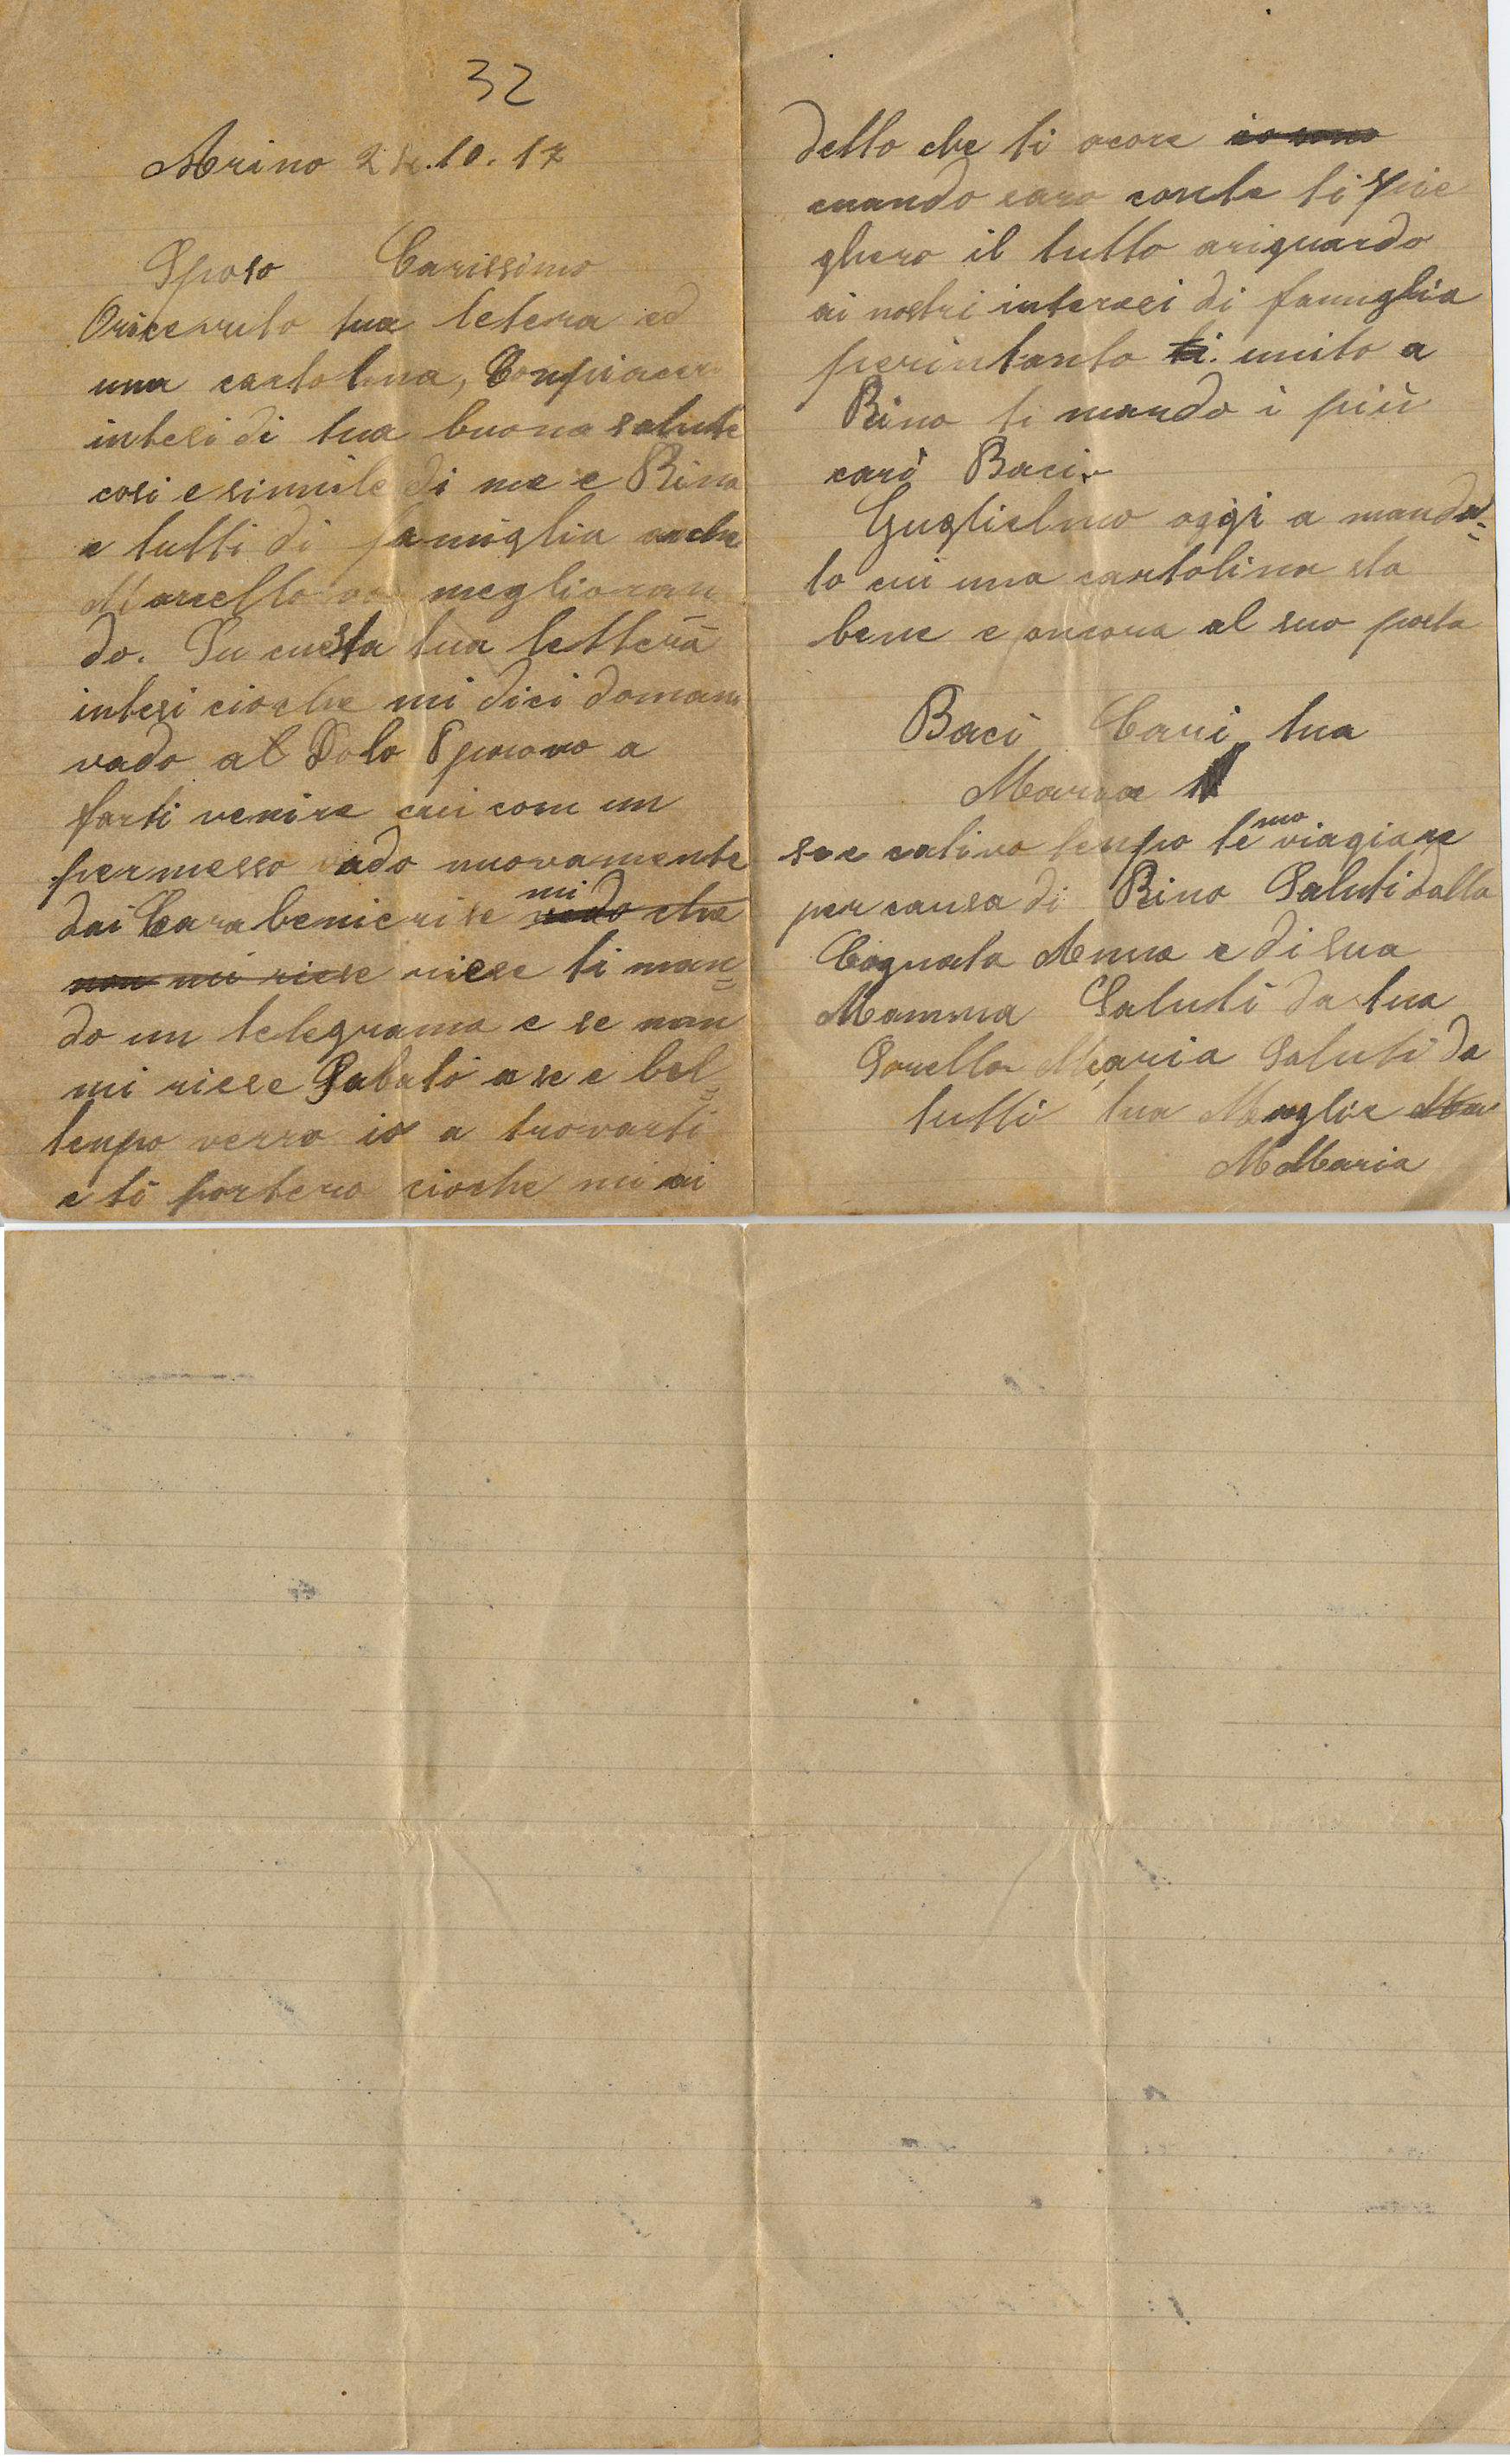 32
Arino 24.10.17
Sposo Carissimo
Oricevuto tua letera ed
una cartolina, Conpiacer
intesi di tua buona salute
cosi e simile di me e Rino
e tutti di famiglia anche
Marcello va meglioran
do. In cuesta tua lettera
intesi cioche mi dici domani
vado al Dolo Sporovo a
farti venire cui com un
permesso vado nuovamente
dai Carabenieri se mi vedo che
non mi riese riese ti man=
do un telegrama e se non
mi riese Sabato a se e bel=
tenpo verro io a trovarti
e ti portero cioche mi ai
detto che ti ocore io sono
cuando saro conte ti spie
ghero il tutto ariguardo
ai nostri interesi di famiglia
perintanto ti. unito a
Rino ti mando i più
cari Baci
Guglielmo oggi a manda=
to cui una cartolina sta
bene e ancora al suo posto
Baci Cari tua
Maria
se e cativo tenpo temo viagiare
per causa di Rino Saluti dalla
Cognata Anna e di sua
Mamma Saluti da tua
Sorella Maria Saluti da
tutti tua Moglie Ma
M Maria